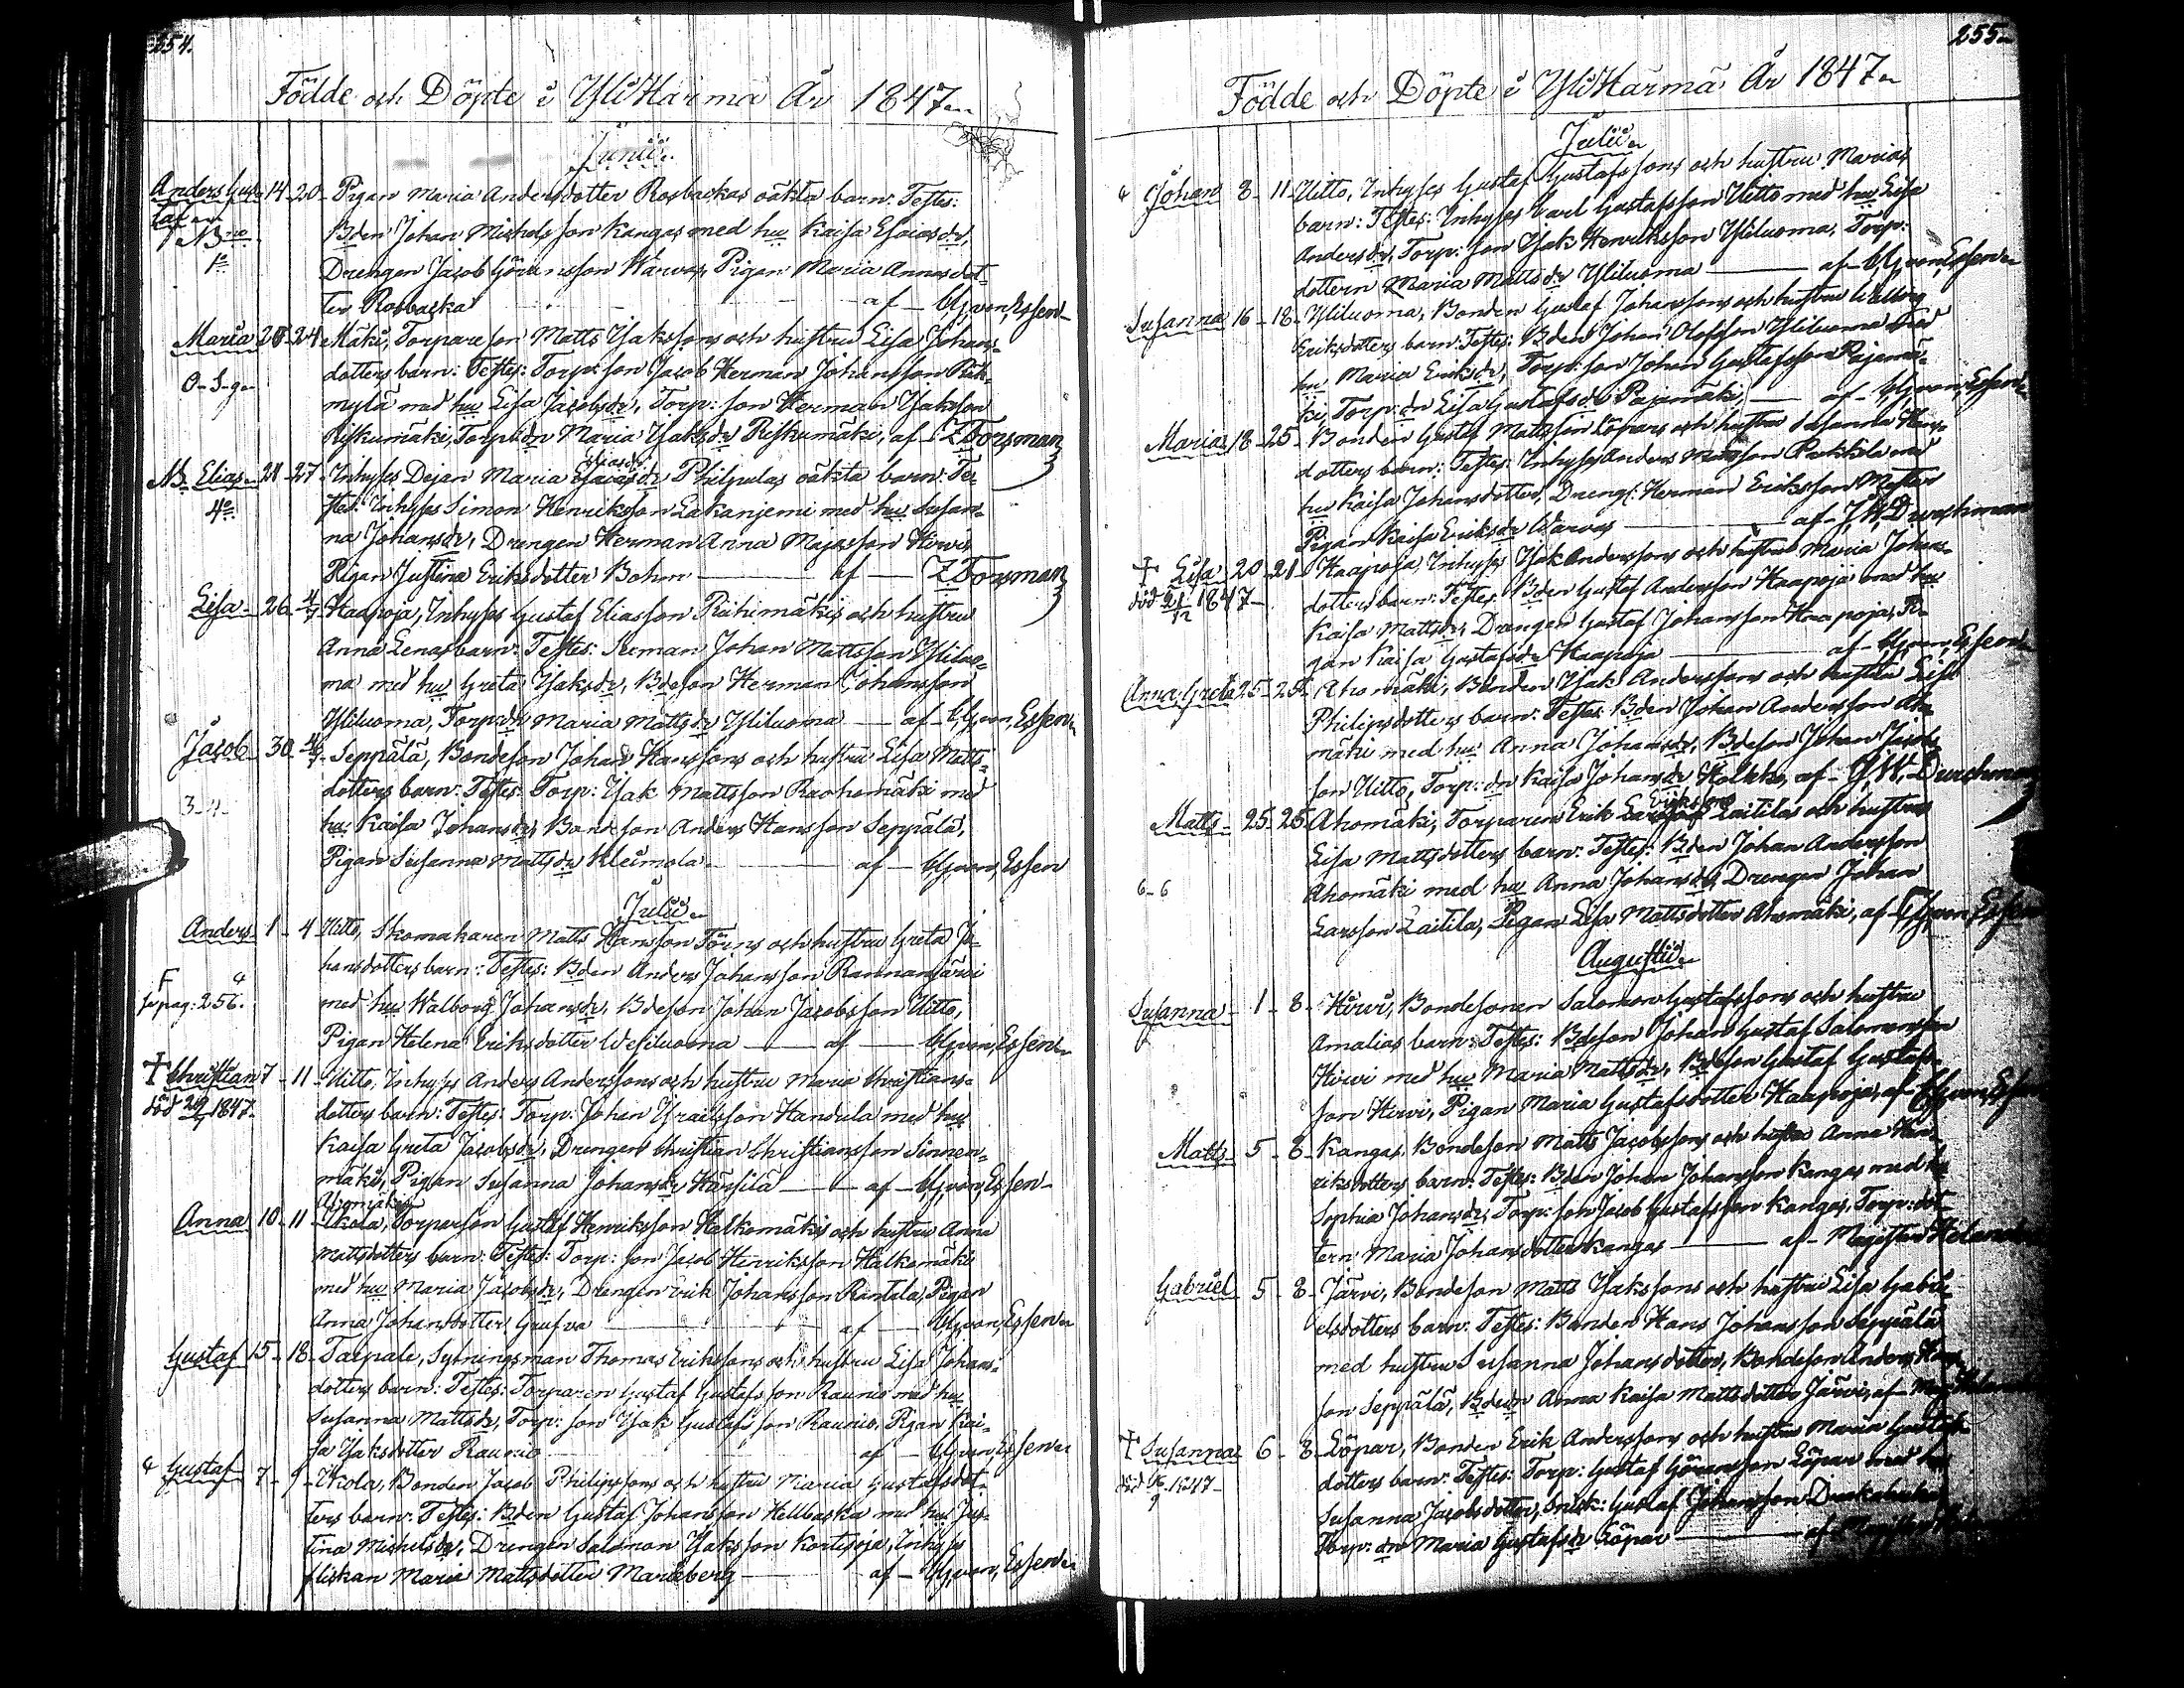 254.
Födde och Döpte i YliHärmä År 1847
Junii
Anders Gus- 14 - 20 - Pigan Maria Andersdotter Rosbackas oäkta barn: Testes:
taf
N3 Bden Johan Michelsson Kangas med hu Kaisa Esaiasdr,
1o Drengen Jacob Göransson Warvas, Pigan Maria Annasdot-
ter Rosbacka af C.G. von Essen
Maria 20 - 24 Mäki, Torpareson Matts Isakssons och hustru Lisa Johans-
dotters barn: Testes: Torp: son Jacob Herman Johansson Rik-
O-S-g- mylä med hu Lisa Jacobsdr, Torp: son Herman Isaksson
Riskumäki, Torp: dr Maria Isaksdr Riskumäki, af Z Forsman
N3 Elias 21 - 27 - Inhyses Dejan Maria Philpulas oäkta barn: Te-
4o stes: Inhyses Simon Henriksson Lakaniemi med hu Susan-
na Johansdr, Drengen Herman Anna Majasson Hirvi,
Pigan Justina Eriksdotter Bohm af Z Forsman
Lisa - 26 - 4/7 Haapoja, Inhyses Gustaf Eliasson Riihimäkis och hustru
Anna Lenas barn: Testes: Johan Mattsson Yliluo-
ma med hu Greta Isaksdr, Bdeson Herman Johansson
Yliluoma, Torp: dr Maria Mattsdr Yliluoma af C.G. von Essen
Jacob 30 - 4/7 - Seppälä, Bondeson Johan Hanssons och hustru Lisa Matts-
dotters barn: Testes: Torp: Isak Mattsson Raohomäki med
3-4- hu Kaisa Johansdr, Bondeson Anders Hansson Seppälä,
Pigan Susanna Mattsdr Kleimola af C.G. von Essen
Julii
Anders 1 - 4 Uitto, Skomakaren Matts Hansson Törns och hustru Greta Jo-
hansdotters barn: Testes: Bden Anders Johansson Rannanjärvi
F 4
se pag: 256. med hu Walborg Johansdr, Bdeson Johan Jacobsson Uitto,
Pigan Helena Eriksdotter Wesiluoma af C.G. von Essen
† Christian 7 - 11 - Uitto, Inhyses Anders Anderssons och hustru Maria Christians-
död 29/9 1847. dotters barn: Testes: Torp: Johan Israelsson Handula med hu
Kaisa Greta Jacobsdr, Drengen Christian Christiansson Sinnen-
mäki, Pigan Susanna Johansdr Hänsilä af C.G. von Essen
Anna 10 - 11 - Ekola, Torpareson Gustaf Henriksson Halkomäkis och hustru Anna
Mattsdotters barn: Testes: Torp: son Jacob Henriksson Halkomäki
med hu Maria Jacobsdr, Drengen Erik Johansson Rantala, Pigan
Anna Johansdotter Grufva af C.G. von Essen
Gustaf 15 - 18 - Talpale, Sytningsman Thomas Erikssons och hustru Lisa Johans-
dotters barn: Testes: Torparen Gustaf Gustafsson Raunio med hu
Susanna Mattsdr, Torp: son Isak Gustafsson Raunio, Pigan Kai-
sa Isaksdotter Raunio af C.G. von Essen
4 Gustaf 7 - 9 - Ekola, Bonden Jacob Philipssons och hustru Maria Gustafsdot-
ters barn: Testes: Bden Gustaf Johansson Hellbacka med hu Jus-
tina Michelsdr, Drengen Salomon Isaksson Kortesoja, Inhyses
flickan Maria Mattsdotter Markberg af C.G. von Essen
255
Födde och Döpte i YliHärmä År 1847
Julii
4 Johan 8 - 11 - Uitto, Inhyses Gustaf Gustafssons och hustru Marias
barn: Testes: Inhyses Carl Gustafsson Uitto med hu Lisa
Andersdr, Torp: son Isak Henriksson Yliluoma, Torp:
dottern Maria Mattsdr Yliluoma af C.G. von Essen
Susanna 16 - 18 - Yliluoma, Bonden Gustaf Johanssons och hustru Walborg
Eriksdotters barn: Testes: Bden Johan Olofsson Yliluoma med
hu Maria Eriksdr, Torp: son Johan Gustafsson Pajamä-
ki, Torp: dr Lisa Gustafsdr Pajamäki, af C.G. von Essen
Maria 18 - 25 - Bonden Gustaf Mattsson Löpars och hustru Susanna Hans-
dotters barn: Testes: Inhyses Anders Mattsson Pukkila med
hu Kaisa Johansdotter, Drengs: Herman Eriksson
Pigan Kaisa Eriksdr Warvas af J.W. Durchman
† Lisa 20 - 21 - Haapoja, Inhyses Isak Anderssons och hustru Maria Johans-
död 21/12 1847 - dotters barn: Testes: Bden Gustaf Andersson Haapoja med hu
Kaisa Mattsdr, Drengen Gustaf Johansson Haapoja, Pi-
gan Kaisa Gustafsdr Haapoja af C.G. von Essen
Anna Greta 25 - 25 - Ahomäki, Bonden Isak Anderssons och hustru Lisa
Philipsdotters barn: Testes: Bden Johan Andersson Aho-
mäki med hu Anna Johansdr, Bdeson Johan Jacobs-
son Uitto, Torp: dr Kaisa Johansdr Kolkka, af J.W. Durchman
Matts 25 - 25 Ahomäki, Torparen Erik Eriksson Laitilas och hustru
Lisa Mattsdotters barn: Testes: Bden Johan Andersson
6-6 Ahomäki med hu Anna Johansdr, Drengen Johan
Larsson Laitila, Pigan Lisa Mattsdotter Ahomäki, af C.G. von Essen
Augustii
Susanna - 1 - 8 - Hirvi, Bondesonen Salomon Gustafssons och hustru
Amalias barn: Testes: Bdeson Johan Gustaf Salomonsson
Hirvi med hu Maria Mattsdr, Bdeson Gustaf Gustafs-
son Hirvi, Pigan Maria Gustafsdotter Haapoja, af C.G. von Essen
Matts 5 - 8 - Kangas, Bondeson Matts Jacobssons och hustru Anna Hen-
riksdotters barn: Testes: Bden Johan Johansson Kangas med hu
Sophia Johansdr, Torp: son Jacob Gustafsson Kangas, Torp: dot-
tern Maria Johansdotter Kangas af Magister Heland
Gabriel 5 - 8 - Järvi, Bondeson Matts Isakssons och hustru Lisa Gabri-
elsdotters barn: Testes: Bonden Hans Johansson Seppälä
med hustru Susanna Johansdotter, Bondeson Anders Hans-
son Seppälä, Bdedr Anna Kaisa Mattsdotter Järvi, af Mag:
† Susanna 6 - 8 - Löpar, Bonden Erik Anderssons och hustru Maria Gustafs-
dotters barn: Testes: Torp: Gustaf Göransson Löpar med hu
död 1847 - Susanna Jacobsdotter, Gustaf Johansson
Torp: dr Maria Gustafsdr Löpar af Magister